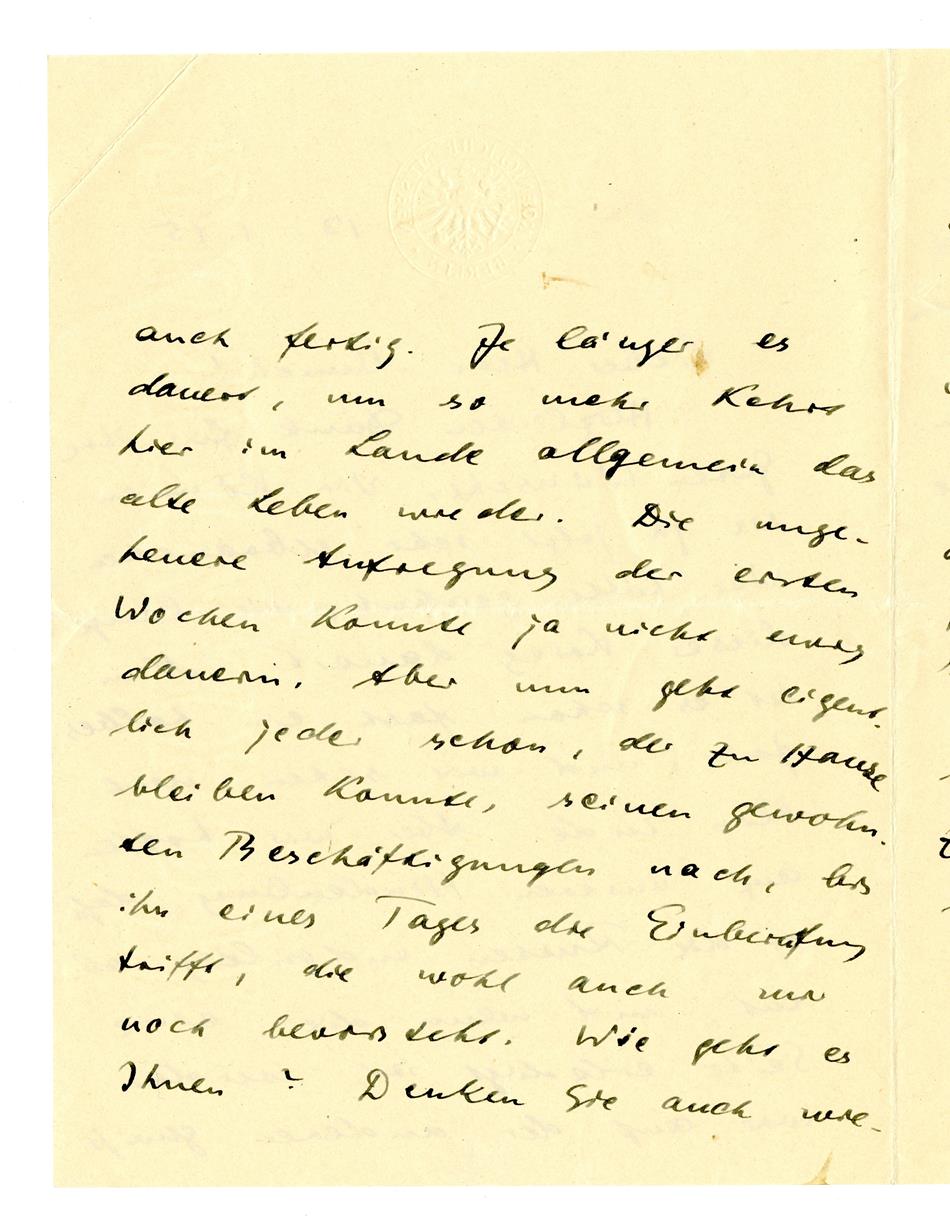 auch fertig. Je länger es
dauert, um so mehr kehrt
hier im Lande allgemein das
alte Leben wieder. Die unge-
heuere Aufregung der ersten
Wochen konnte ja nicht ewig
dauern. Aber nun geht eigent-
lich jeder schon, der zu Hause
bleiben konnte, seinen gewohn-
ten Beschäftigungen nach, bis
ihn eines Tages die Einberufung
trifft, die wohl auch mir
noch bevorsteht. Wie geht es
Ihnen? Denken Sie auch wie-